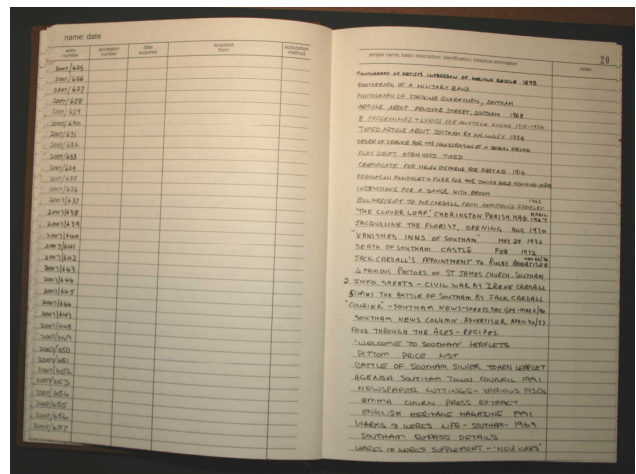 name: date
entry number
accession number
date acquired
acquired from
acquisition method
2007/625
2007/626
2007/627
2007/628
2007/629
2007/630
2007/631
2007/632
2007/633
2007/634
2007/635
2007/636
2007/637
2007/638
2007/639
2007/640
2007/641
2007/642
2007/643
2007/644
2007/645
2007/646
2007/647
2007/648
2007/649
2007/650
2007/651
2007/652
2007/653
2007/654
2007/655
2007/656
2007/657
20
simple name; basic description; identification; historical information
notes
PHOTOGRAPH OF ARTISTS IMPRESSION OF RESCUE 1893
PHOTOGRAPH OF A MILITARY BAND
PHOTOGRAPH OF STRIKING QUARRYMEN, SOUTHAM
ARTICLE ABOUT PENDICKE STREET, SOUTHAM 1968
8 PROGRAMMES + FOR AMATEUR SHOWS
TYPED ARTICLE ABOUT SOUTHAM BY 1984
ORDER OF SERVICE FOR THE CONSECRATION OF A BURIAL GROUND
PLAY SCRIPT ROBIN HOOD TYPED
CERTIFICATE FOR HELEN STEPHENS FOR 1914
PAMPHLET + FLIER FOR THE JUNIOR TRAINING CORPS
INSTRUCTIONS FOR A DANCE WITH BROOM
BILL + RECEIPT TO MR CARDALL FROM ARMSTRONG SIDDELEY
"THE CLOVER LEAF," CHERINGTON PARISH MAG. APRIL 1967
JACQUELINE THE FLORIST, OPENING AUG 1970
'VANISHED INNS OF SOUTHAM. MAY 29 1936
DEATH OF SOUTHAM CASTLE FEB 1972
JACK CARDALL'S APPOINTMENT TO RUGBY ADVERTISER
4 FAMOUS RECTORS OF ST JAMES CHURCH. SOUTHAM
2. INFO. SHEETS - CIVIL WAR BY IRENE CARDALL
5 COPIES THE BATTLE OF SOUTHAM BY JACK CARDALL
'COURIER' - SOUTHAM NEWS-SHEETS
SOUTHAM NEWS COLUMN - ADVERTISER APRIL
FOOD THROUGH THE AGES - RECIPES.
'WELCOME TO SOUTHAM' LEAFLETS
PITTOM PRICE LIST
BATTLE OF SOUTHAM SILVER TOKEN LEAFLET
AGENDA SOUTHAM TOWN COUNCIL 1991
NEWSPAPER CUTTINGS - VARIOUS 1930s
EMMA CHIRN PRESS EXTRACT
ENGLISH HERITAGE MAGAZINE 1991
WARKS & WORCS LIFE - SOUTHAM - 1969
SOUTHAM BYPASS DETAILS
WARCS & WORCS SUPPLEMENT - 'NEW CARS'